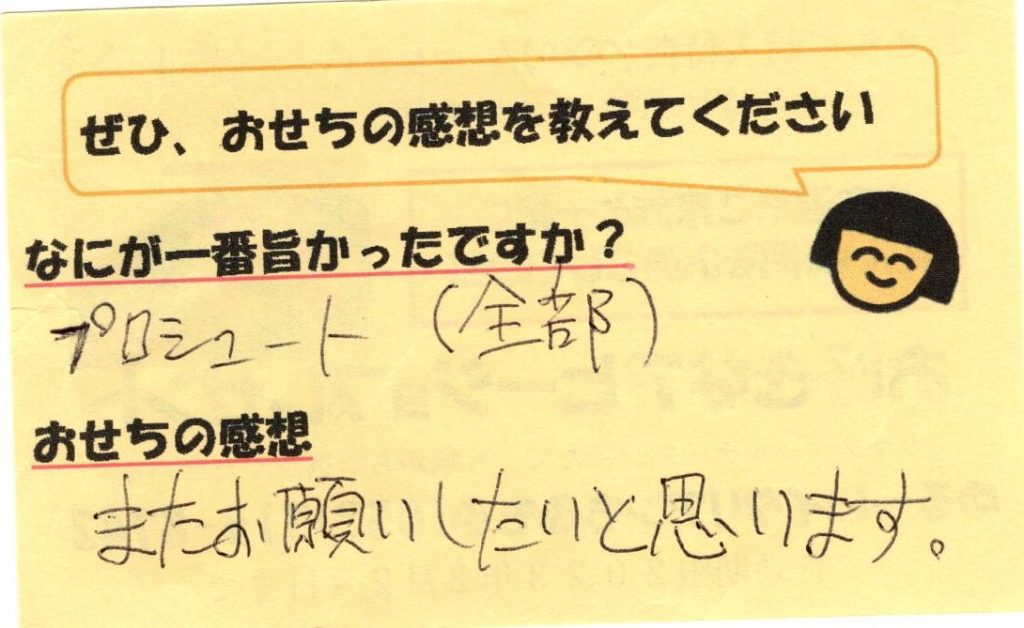 ぜひ、おせちの感想を教えてください
なにが一番旨かったですか？
プロシュート （全部）
おせちの感想
またお願いしたいと思います。